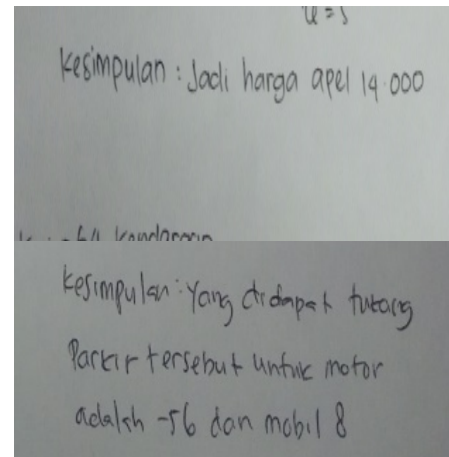 Kesimpulan : Jadi harga apel 14.000
Kesimpulan : Yang didapat tukang
Parkir tersebut untuk motor
adalah -56 dan mobil 8